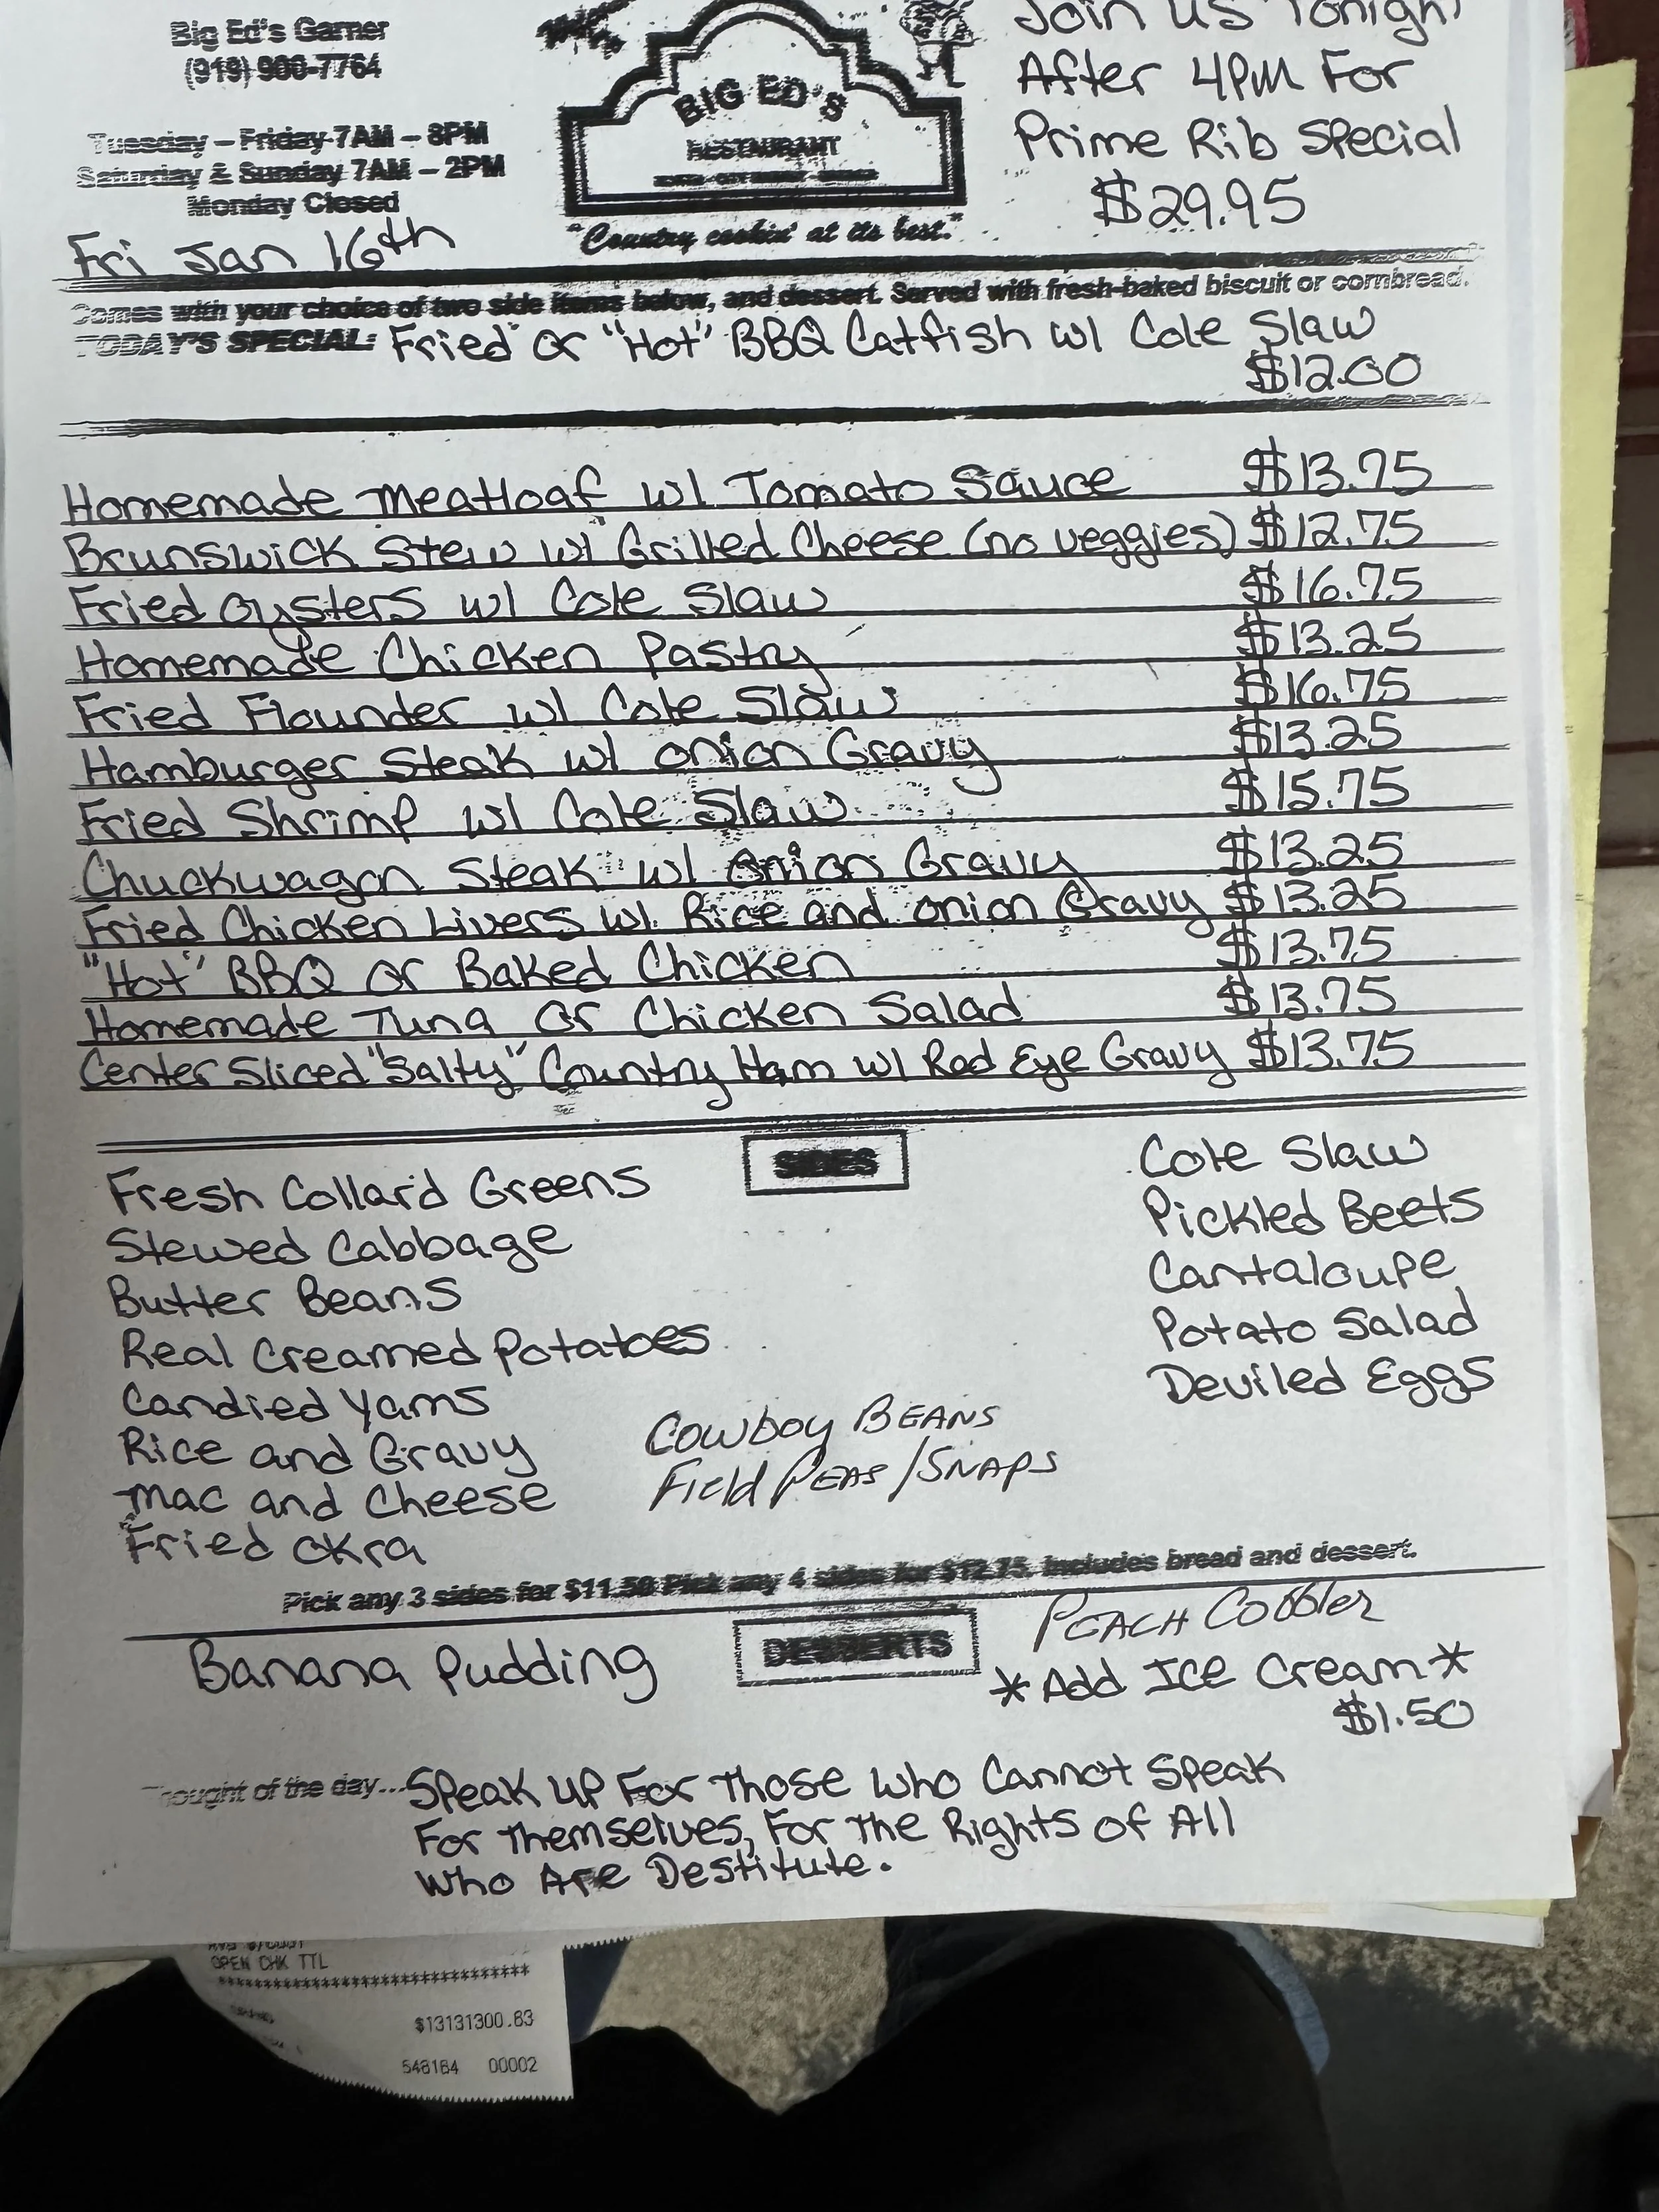 Big Ed's Garner
(919) 900-7764
Tuesday – Friday 7AM – 8PM
Saturday & Sunday 7AM – 2PM
Monday Closed
Fri Jan 16th
BIG ED'S
RESTAURANT
"Country cookin' at its best."
Join us Tonight
After 4PM For
Prime Rib Special
$29.95
Comes with your choice of two side items below, and dessert. Served with fresh-baked biscuit or cornbread.
TODAY'S SPECIAL: Fried or "Hot" BBQ Catfish w/ Cole Slaw
$12.00
Homemade Meatloaf w/ Tomato Sauce $13.75
Brunswick Stew w/ Grilled Cheese (no veggies) $12.75
Fried Oysters w/ Cole Slaw $16.75
Homemade Chicken Pastry $13.25
Fried Flounder w/ Cole Slaw $16.75
Hamburger Steak w/ Onion Gravy $13.25
Fried Shrimp w/ Cole Slaw $15.75
Chuckwagon Steak w/ Onion Gravy $13.25
Fried Chicken Livers w/ Rice and Onion Gravy $13.25
"Hot" BBQ or Baked Chicken $13.75
Homemade Tuna or Chicken Salad $13.75
Center Sliced "Salty" Country Ham w/ Red Eye Gravy $13.75
SIDES
Fresh Collard Greens
Stewed Cabbage
Butter Beans
Real Creamed Potatoes
Candied Yams
Rice and Gravy
Mac and Cheese
Fried Okra
Cowboy BEANS
Field PEAS/SNAPS
Cole Slaw
Pickled Beets
Cantaloupe
Potato Salad
Deviled Eggs
Pick any 3 sides for $11.50 Pick any 4 sides for $12.75. Includes bread and dessert.
DESSERTS
Banana Pudding
PEACH Cobbler
*Add Ice Cream*
$1.50
Thought of the day... Speak up For Those who Cannot Speak
For Themselves, For The Rights of All
who Are Destitute.
OPEN CHK TTL
******************************
$13131300.83
548184 00002